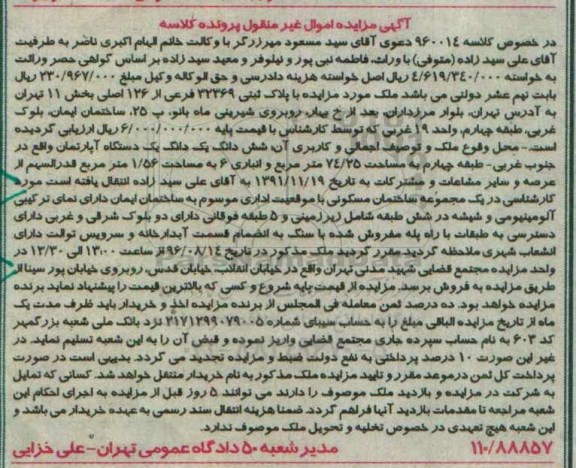 آگهی مزایده اموال غیر منقول پرونده کلاسه
در خصوص کلاسه ۹۶۰۰۱۴ دعوی آقای سید مسعود مهرزرگر با وکالت خانم الهام اکبری ناضر به طرفیت
آقای علی سید زاده (متوفی) با وراث، فاطمه نبی پور و نیلوفر و معید سید زاده بر اساس گواهی حصر وراثت
به خواسته ۴/۶۱۹/۳۴۰/۰۰۰ ریال اصل خواسته هزینه دادرسی و حق الوکاله وکیل مبلغ ۲۳۰/۹۶۷/۰۰۰ ریال
بابت نیم عشر دولتی می باشد ملک مورد مزایده با پلاک ثبتی ۳۲۳۶۹ فرعی از ۱۲۶ اصلی بخش ۱۱ تهران
به آدرس تهران، بلوار مرزداران، بعد از خ بهار، روبروی شیرینی ماه بانو، پ ۲۵، ساختمان ایمان، بلوک
غربی، طبقه چهارم، واحد ۱۹ غربی که توسط کارشناس با قیمت پایه ۶/۰۰۰/۰۰۰/۰۰۰ ریال ارزیابی گردیده
است.- محل وقوع ملک و توصیف اجمالی و کاربری آن: شش دانگ یک دانگ یک دستگاه آپارتمان واقع در
جنوب غربی- طبقه چهارم به مساحت ۷۴/۲۵ متر مربع و انباری ۶ به مساحت ۱/۵۶ متر مربع قدرالسهم از
عرصه و سایر مشاعات و مشترکات به تاریخ ۱۳۹۱/۱۱/۱۹ به آقای علی سید زاده انتقال یافته است مورد
کارشناسی در یک مجموعه ساختمان مسکونی با موقعیت اداری موسوم به ساختمان ایمان دارای نمای ترکیبی
آلومینیومی و شیشه در شش طبقه شامل زیرزمینی و ۵ طبقه فوقانی دارای دو بلوک شرقی و غربی دارای
دسترسی به طبقات با راه پله مفروش شده با سنگ به انضمام قسمت آبدارخانه و سرویس توالت دارای
انشعاب شهری ملاحظه گردید.مقرر گردید ملک مذکور در تاریخ ۹۶/۰۸/۱۴ از ساعت ۱۳:۰۰ الی ۱۳/۳۰ در
واحد مزایده مجتمع قضایی شهید مدنی تهران واقع در خیابان انقلاب، خیابان قدس، روبروی خیابان پور سینا از
طریق مزایده به فروش برسد. مزایده از قیمت پایه شروع و کسی که بالاترین قیمت را پیشنهاد نماید برنده
مزایده خواهد بود. ده درصد ثمن معامله فی المجلس از برنده مزایده اخذ و خریدار باید ظرف مدت یک
ماه از تاریخ مزایده الباقی مبلغ را به حساب سیبای شماره ۲۱۷۱۲۹۹۰۷۹۰۰۵ نزد بانک ملی شعبه بزرگمهر
کد ۶۰۳ به نام حساب سپرده جاری مجتمع قضایی واریز نموده و قبض آن را به این شعبه تسلیم نماید. در
غیر این صورت ۱۰ درصد پرداختی به نفع دولت ضبط و مزایده تجدید می گردد. بدیهی است در صورت
پرداخت کل ثمن درموعد مقرر و تایید مزایده ملک مذکور به نام خریدار منتقل خواهد شد. کسانی که تمایل
به شرکت در مزایده و بازدید ملک موصوف را دارند می توانند ۵ روز قبل از مزایده به اجرای احکام این
شعبه مراجعه تا مقدمات بازدید آنها فراهم گردد. ضمنا هزینه انتقال سند رسمی به عهده خریدار می باشد و
این شعبه هیچ تعهدی در خصوص تخلیه و تحویل ملک موصوف ندارد.
۱۱۰/۸۸۸۵۷ مدیر شعبه ۵۰ دادگاه عمومی تهران- علی خزایی